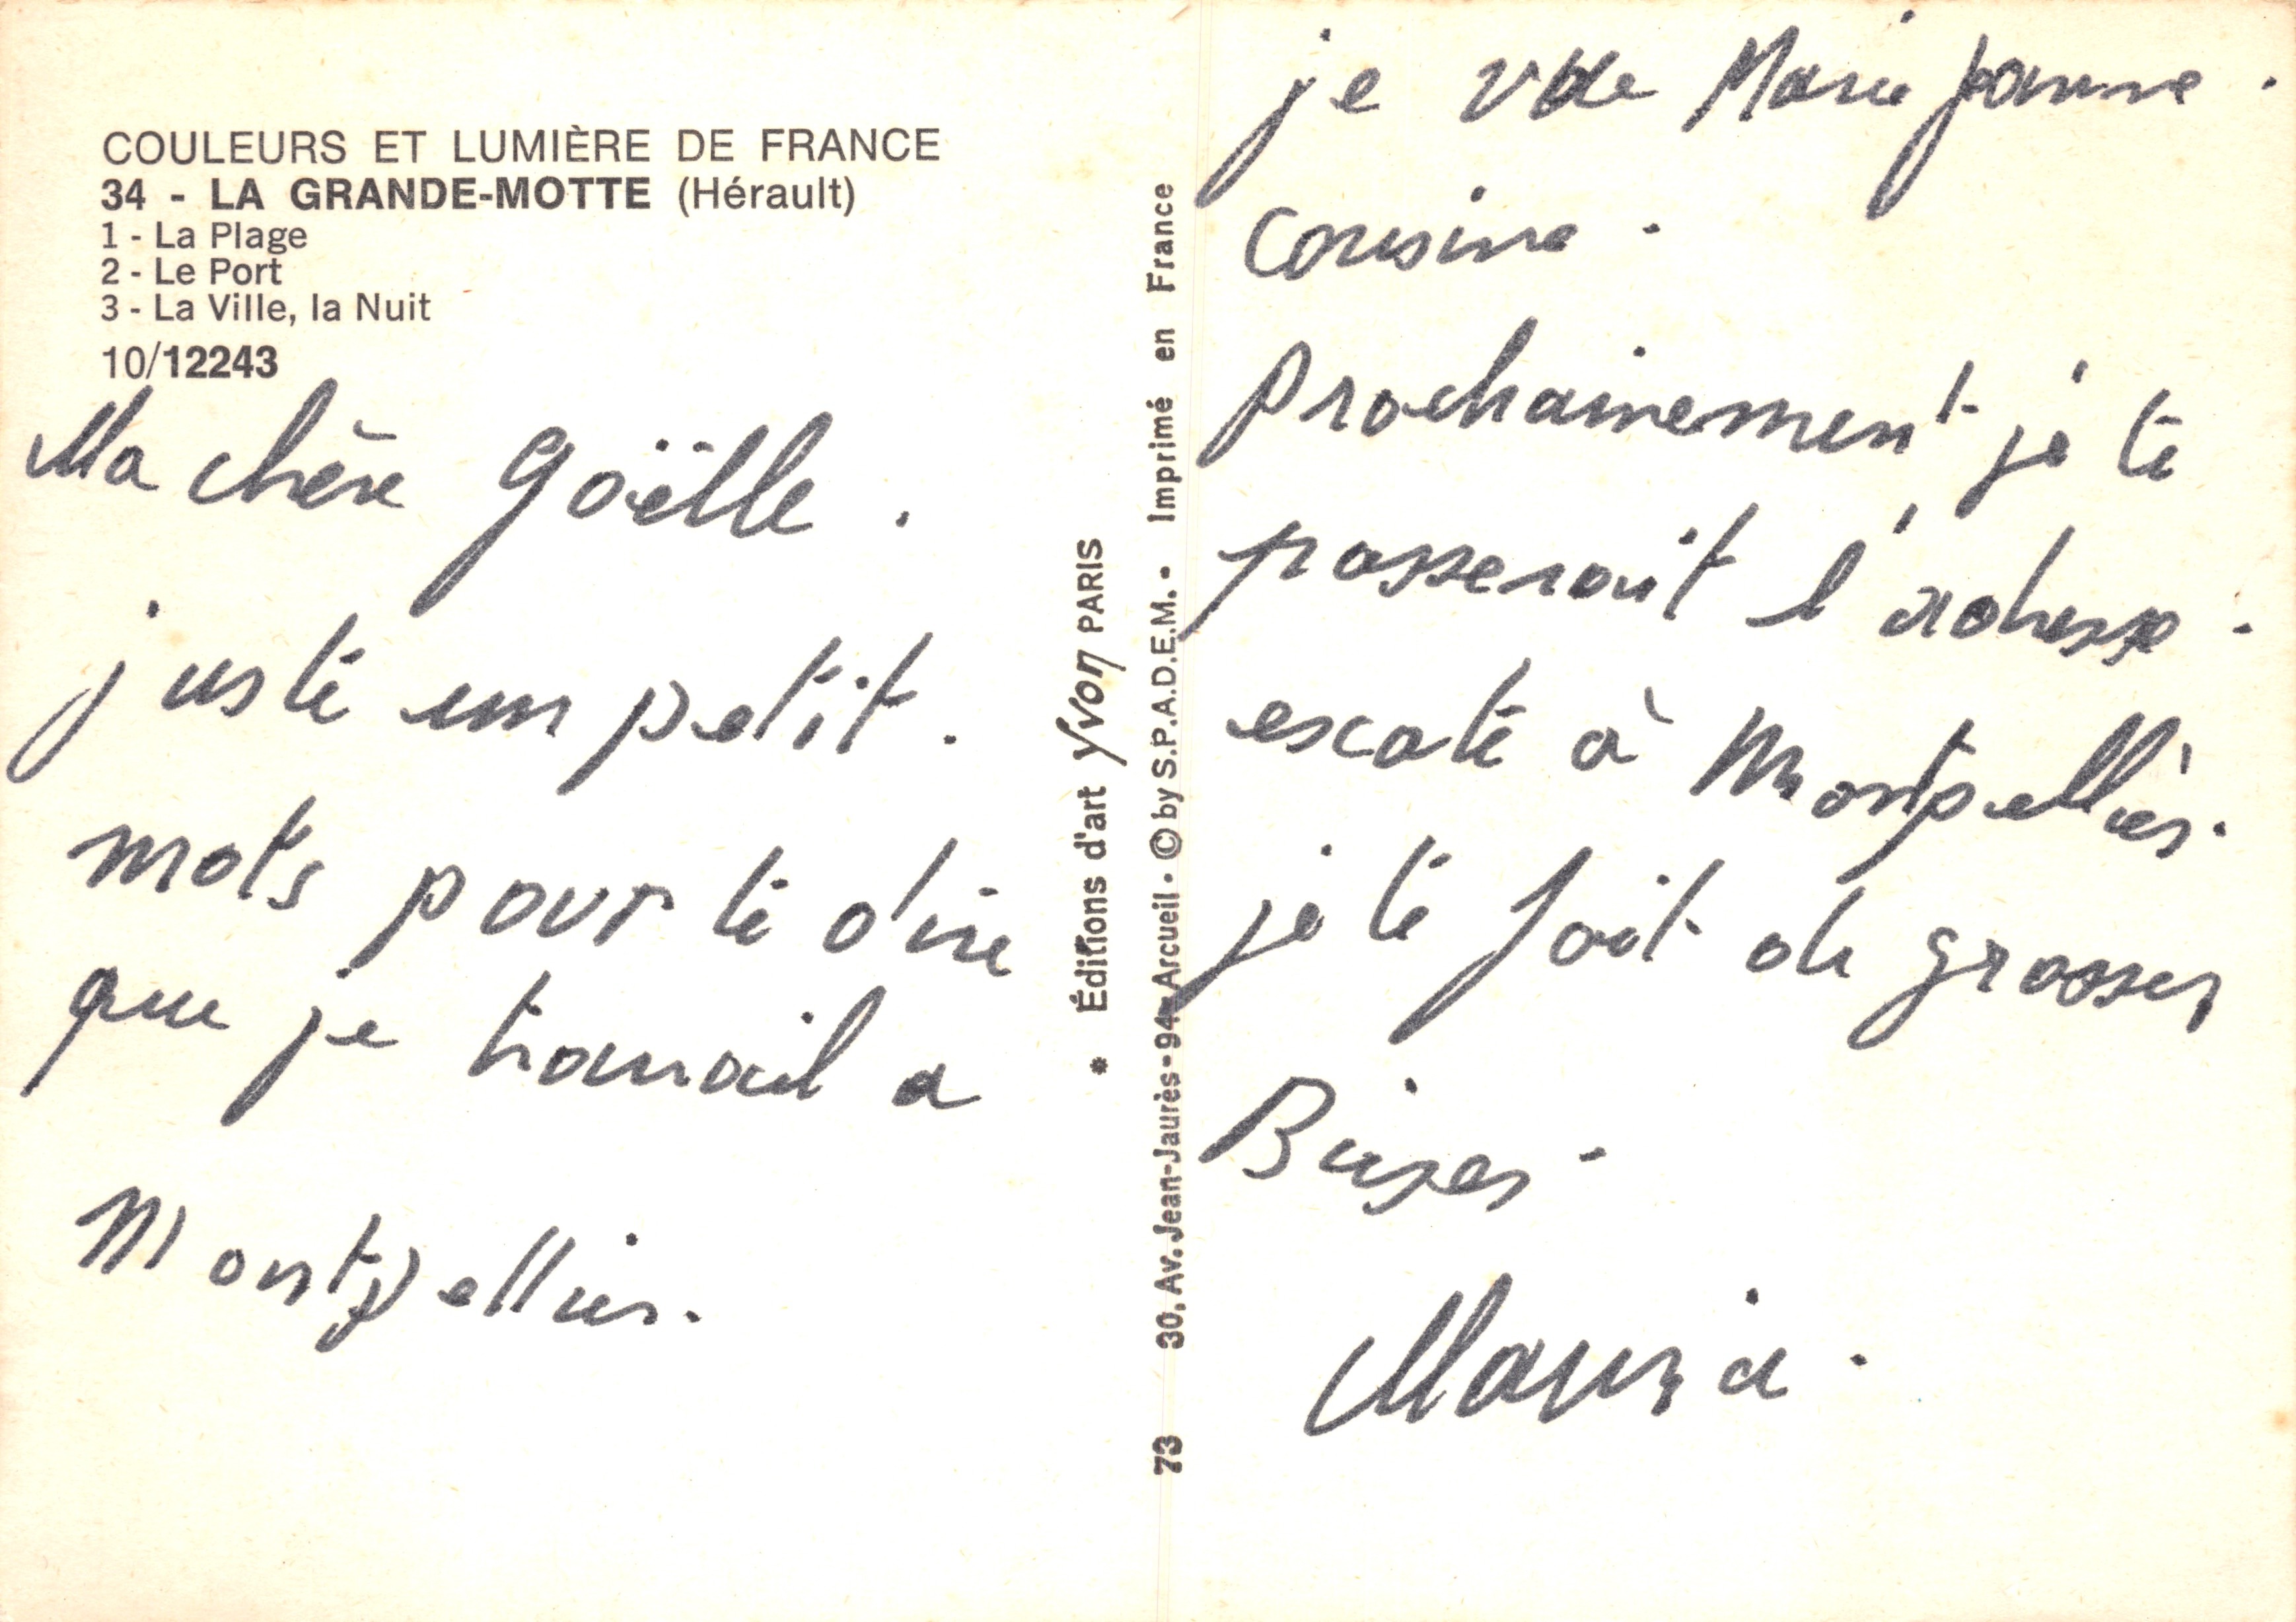 COULEURS ET LUMIÈRE DE FRANCE
34 - LA GRANDE-MOTTE (Hérault)
1 - La Plage
2 - Le Port
3 - La Ville, la Nuit
10/12243
Ma chère Goëlle.
juste un petit.
mots pour te dire
que je travail a
Montpellier.
* Éditions d'art Yvon PARIS
73 30, Av. Jean-Jaurès - 94 - Arcueil • © by S.P.A.D.E.M. • Imprimé en France
je Marie Jeanne.
Cousine.
prochainement je te
passerait l'adresse.
à Montpellier.
je te fait de grosses
Bises.